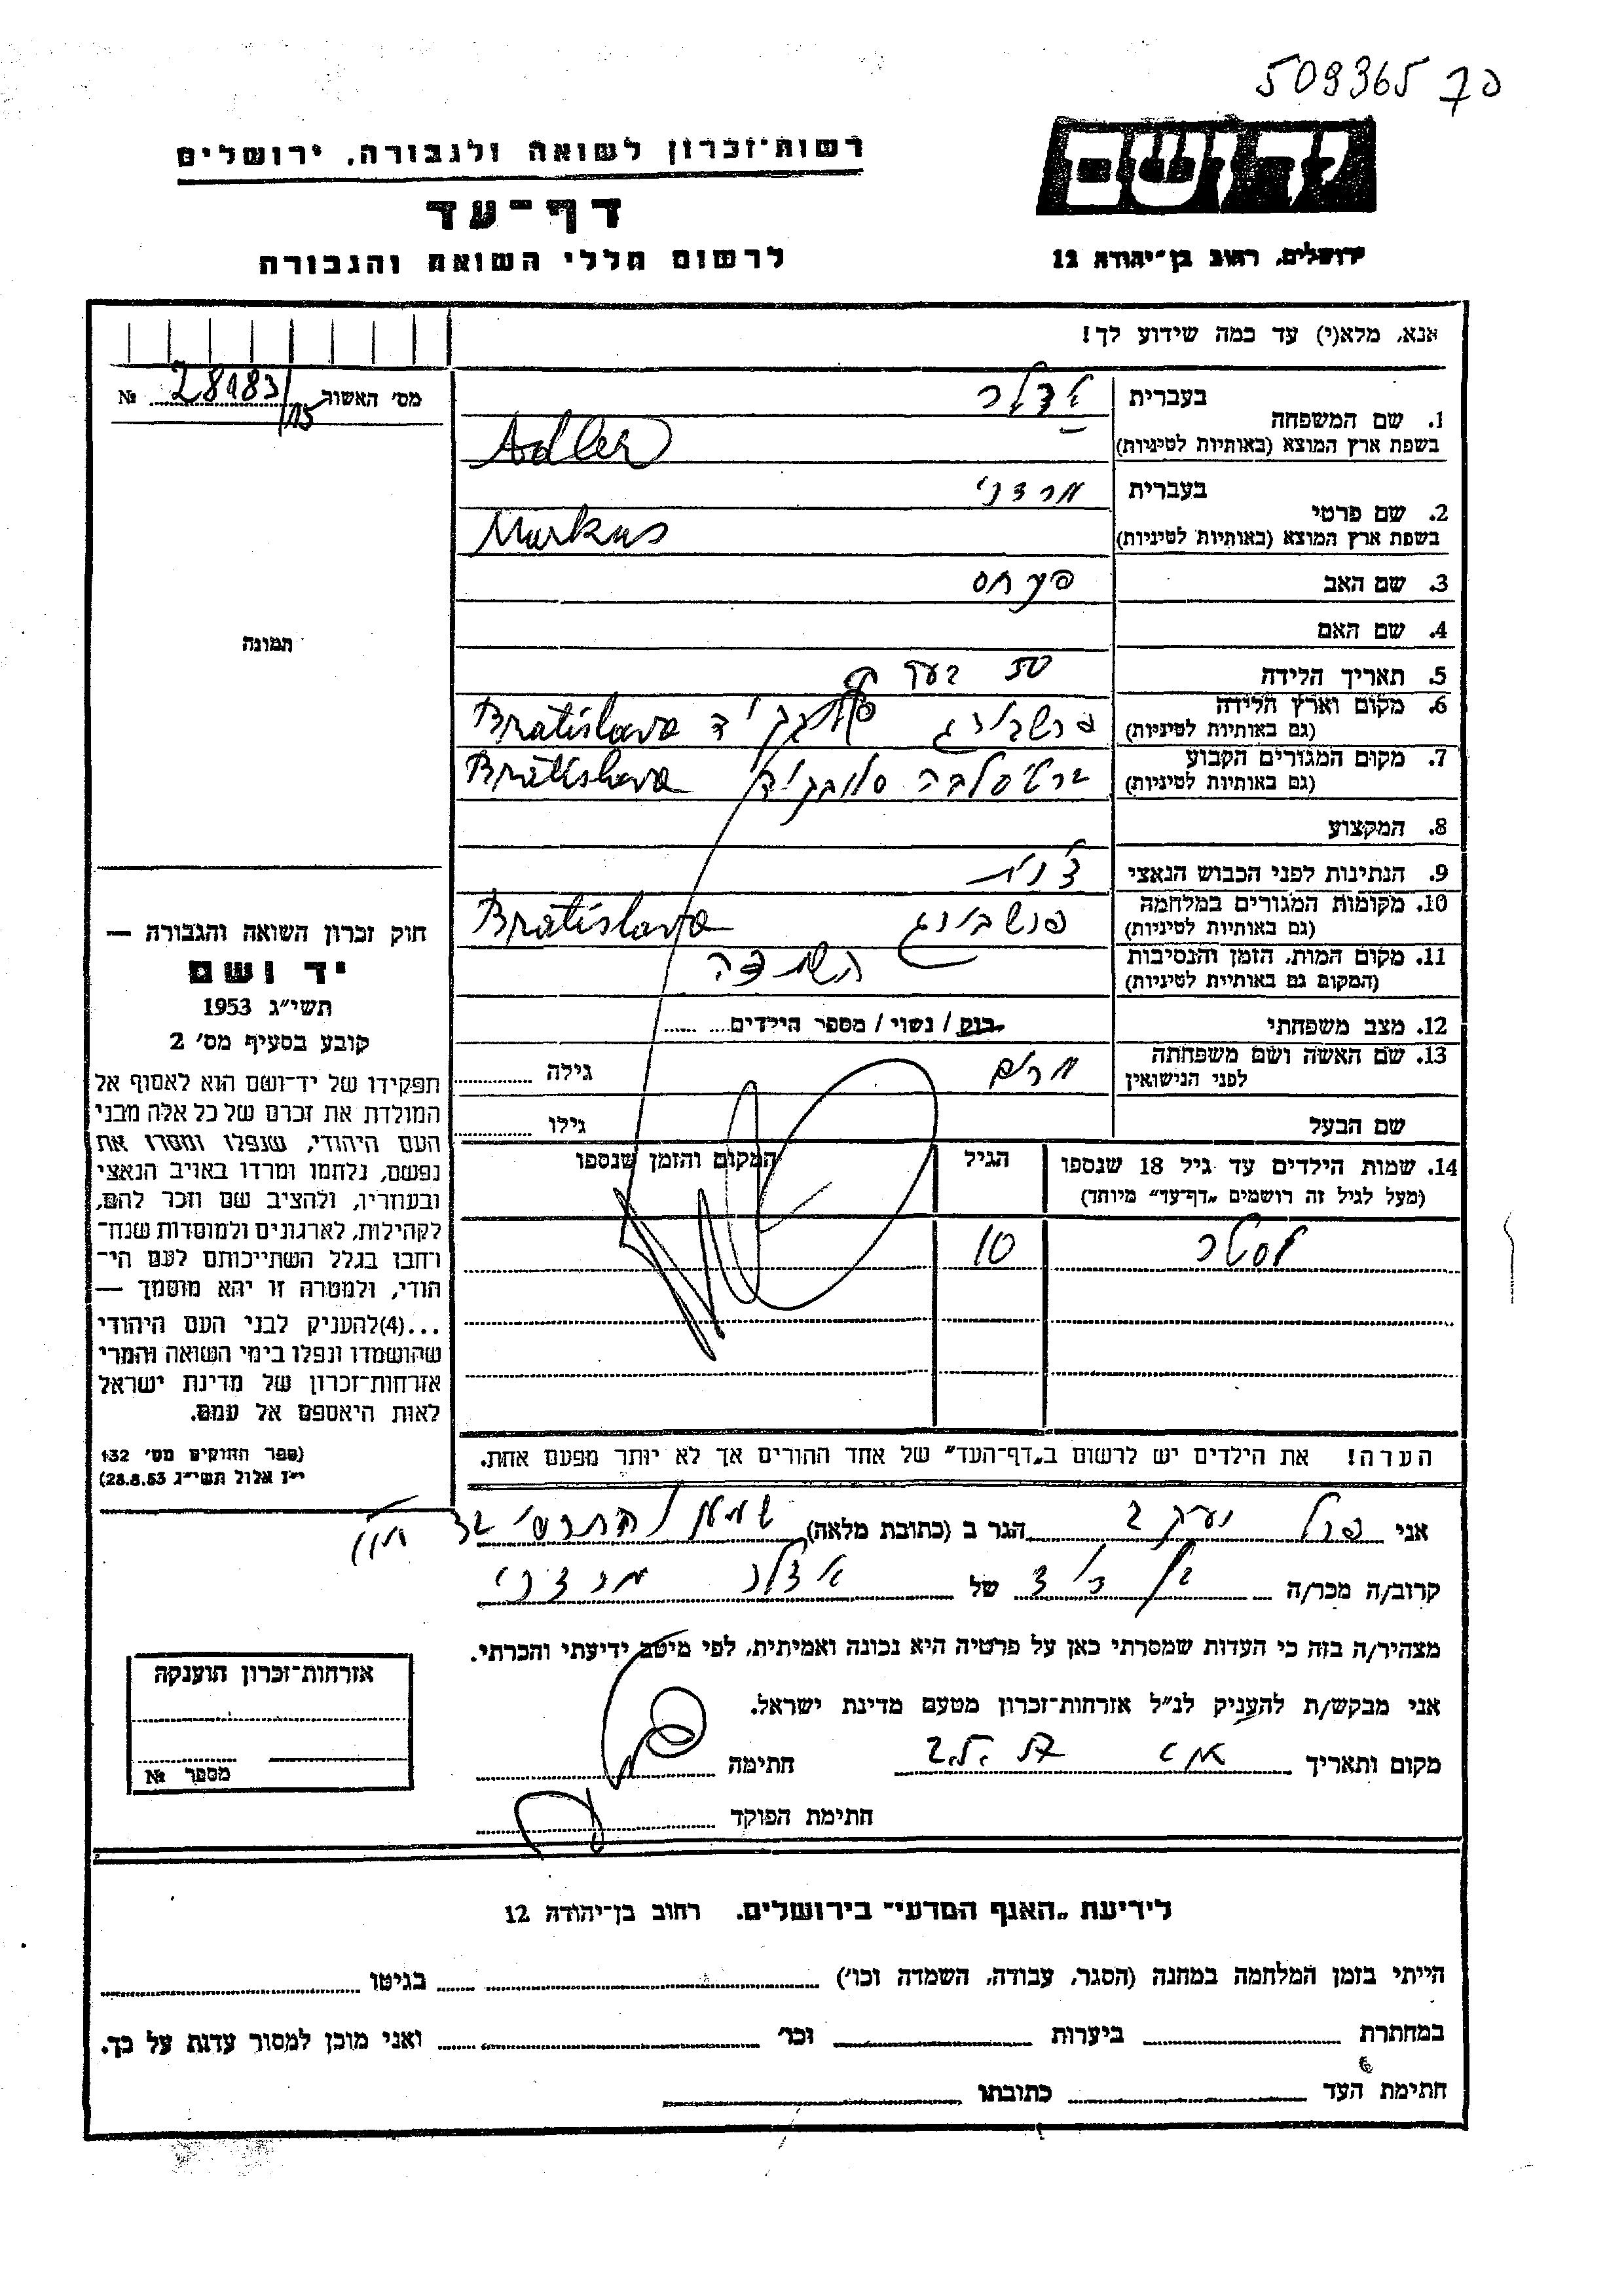 509365 70
רשות־זכרון לשואה ולגבורה, ירושלים
דף־עד
לרשום חללי השואה והגבורה
יד ושם
ירושלים, רחוב בן־יהודה 12
אנא, מלא(י) עד כמה שידוע לך!
מס׳ האשור 28183/115 №
1. שם המשפחה
בעברית אדלר
בשפת ארץ המוצא (באותיות לטיניות) Adler
2. שם פרטי
בעברית מרדכי
בשפת ארץ המוצא (באותיות לטיניות) Markus
3. שם האב פנחס
4. שם האם
תמונה
5. תאריך הלידה 50 בערך
6. מקום וארץ הלידה
(גם באותיות לטיניות) פרשבורג Bratislava
7. מקום המגורים הקבוע
(גם באותיות לטיניות) ברטיסלבה סלובקיה Bratislava
8. המקצוע
9. הנתינות לפני הכבוש הנאצי צ'כית
10. מקומות המגורים במלחמה
(גם באותיות לטיניות) פרשבורג Bratislava
11. מקום המות, הזמן והנסיבות
(המקום גם באותיות לטיניות) השמדה
12. מצב משפחתי רווק / נשוי / מספר הילדים
13. שם האשה ושם משפחתה
לפני הנישואין מרים גילה
שם הבעל גילו
14. שמות הילדים עד גיל 18 שנספו
(מעל לגיל זה רושמים „דף־עד״ מיוחד)
הגיל
המקום והזמן שנספו
אסתר 10
הערה! את הילדים יש לרשום ב„דף־העד״ של אחד ההורים אך לא יותר מפעם אחת.
חוק זכרון השואה והגבורה —
יד ושם
תשי״ג 1953
קובע בסעיף מס׳ 2
תפקידו של יד־ושם הוא לאסוף אל
המולדת את זכרם של כל אלה מבני
העם היהודי, שנפלו ומסרו את
נפשם, נלחמו ומרדו באויב הנאצי
ובעוזריו, ולהציב שם וזכר להם,
לקהילות, לארגונים ולמוסדות שנח־
רחבו בגלל השתייכותם לעם הי־
הודי, ולמטרה זו יהא מוסמך —
...(4)להעניק לבני העם היהודי
שהושמדו ונפלו בימי השואה והמרי
אזרחות־זכרון של מדינת ישראל
לאות היאספם אל עמם.
(ספר החוקים מס׳ 132
י״ז אלול תשי״ג 28.8.53)
אני פרל יעקב הגר ב (כתובת מלאה)
קרוב/ה מכר/ה בן דוד של אדלר מרדכי
מצהיר/ה בזה כי העדות שמסרתי כאן על פרטיה היא נכונה ואמיתית, לפי מיטב ידיעתי והכרתי.
אני מבקש/ת להעניק לנ״ל אזרחות־זכרון מטעם מדינת ישראל.
מקום ותאריך חתימה
חתימת הפוקד
אזרחות־זכרון הוענקה
מספר №
לידיעת „האגף המדעי״ בירושלים, רחוב בן־יהודה 12
הייתי בזמן המלחמה במחנה (הסגר, עבודה, השמדה וכו׳) בגיטו
במחתרת ביערות וכו׳ ואני מוכן למסור עדות על כך.
חתימת העד כתובתו